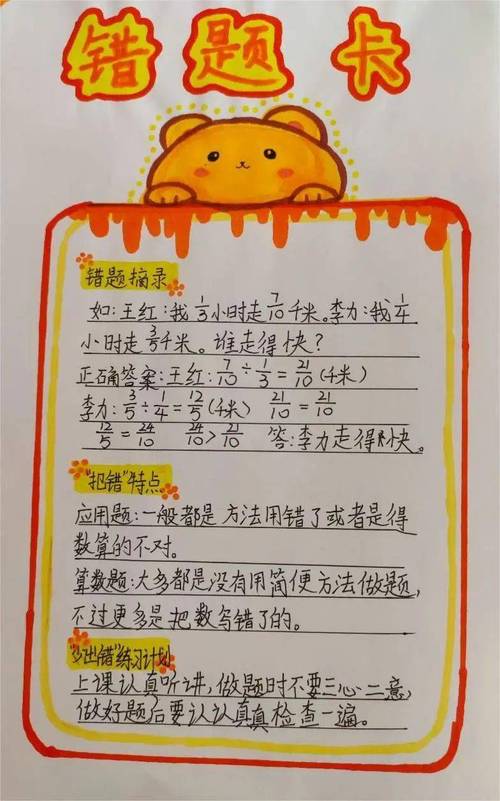 错题卡
错题摘录
如:王红:我1/3小时走7/10千米。李力:我1/4
小时走3/5千米。谁走得快?
正确答案:王红:7/10÷1/3=21/10(千米)
李力:3/5÷1/4=12/5(千米) 21/10=21/10
12/5=24/10 24/10>21/10 答:李力走得快。
"犯错"特点
应用题:一般都是方法用错了或者是得
数算的不对。
算数题:大多都是没有用简便方法做题,
不过更多是把数写错了的。
"少出错"练习计划
上课认真听讲,做题时不要三心二意,
做好题后要认认真真检查一遍。